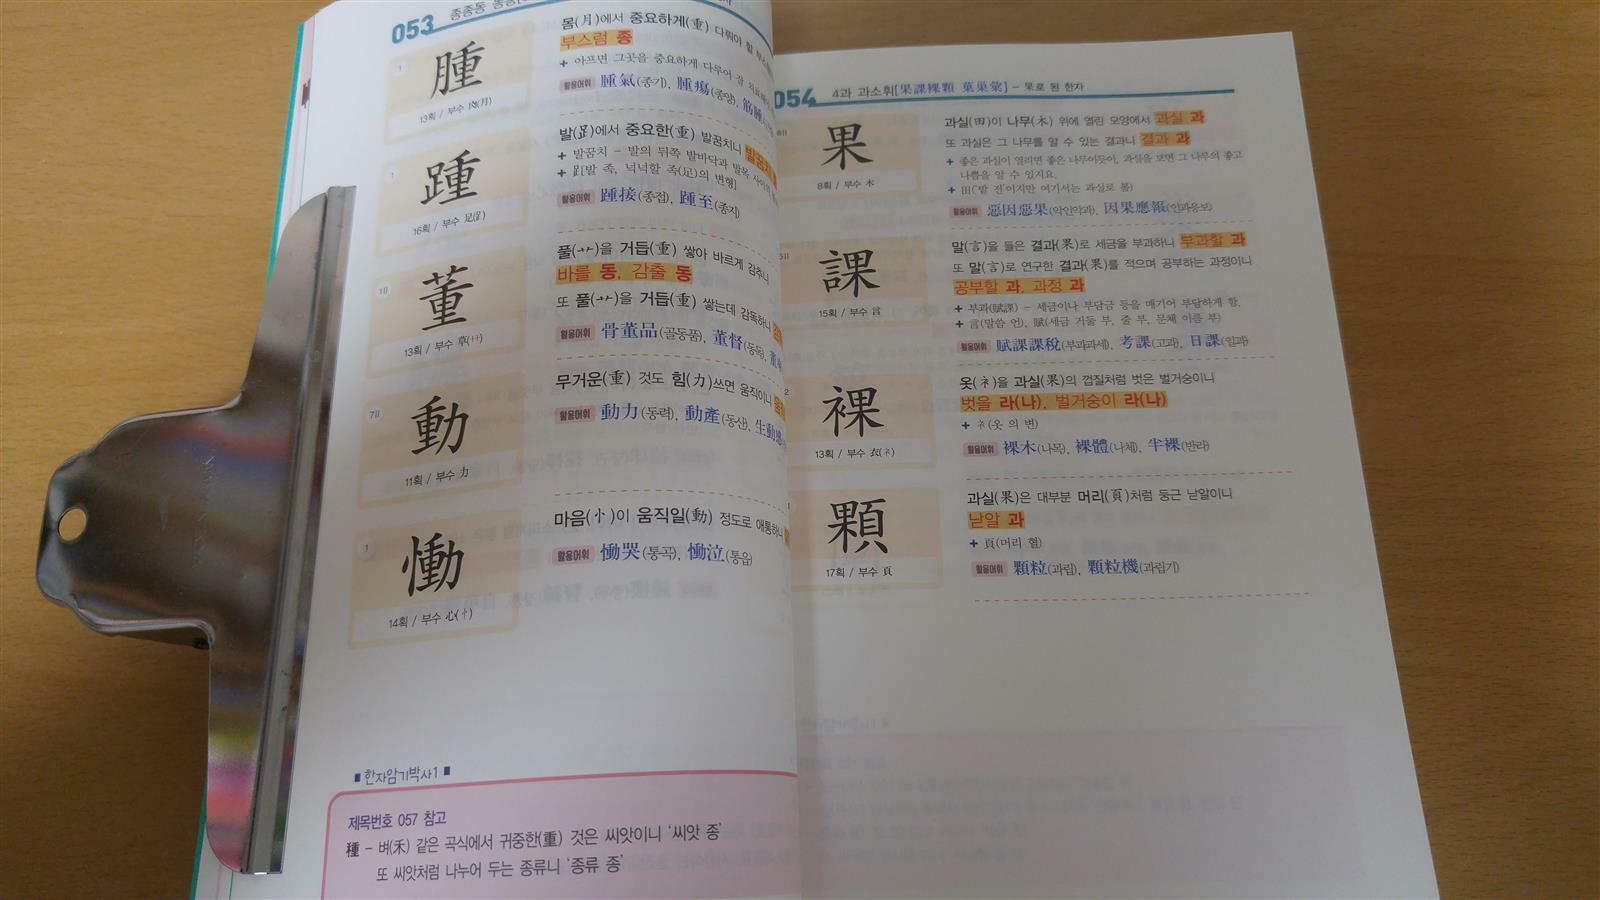 053 종종동 동통
1
腫
13획 / 부수 肉(月)
몸(月)에서 중요하게(重) 다뤄야 할
부스럼 종
+ 아프면 그곳을 중요하게 다루어 잘
활용어휘 腫氣(종기), 腫瘍(종양), 筋腫
1
踵
16획 / 부수 足(⻊)
발(⻊)에서 중요한(重) 발꿈치니 발꿈치
+ 발꿈치 - 발의 뒤쪽 발바닥과 발목 사이의
+ ⻊[발 족, 넉넉할 족(足)의 변형]
활용어휘 踵接(종접), 踵至(종지)
1Ⅱ
董
13획 / 부수 草(艹)
풀(艹)을 거듭(重) 쌓아 바르게 감추니
바를 동, 감출 동
또 풀(艹)을 거듭(重) 쌓는데 감독하니
활용어휘 骨董品(골동품), 董督(동독),
7Ⅱ
動
11획 / 부수 力
무거운(重) 것도 힘(力)쓰면 움직이니
활용어휘 動力(동력), 動産(동산), 生動感
1
慟
14획 / 부수 心(忄)
마음(忄)이 움직일(動) 정도로 애통하니
활용어휘 慟哭(통곡), 慟泣(통읍)
■ 한자암기박사1 ■
제목번호 057 참고
種 - 벼(禾) 같은 곡식에서 귀중한(重) 것은 씨앗이니 '씨앗 종'
또 씨앗처럼 나누어 두는 종류니 '종류 종'
054 4과 과소휘[果課裸顆 菓巢彙] - 果로 된 한자
果
8획 / 부수 木
과실(田)이 나무(木) 위에 열린 모양에서 과실 과
또 과실은 그 나무를 알 수 있는 결과니 결과 과
+ 좋은 과실이 열리면 좋은 나무이듯이, 과실을 보면 그 나무의 좋고
나쁨을 알 수 있지요.
+ 田('밭 전'이지만 여기서는 과실로 봄)
활용어휘 惡因惡果(악인악과), 因果應報(인과응보)
課
15획 / 부수 言
말(言)을 들은 결과(果)로 세금을 부과하니 부과할 과
또 말(言)로 연구한 결과(果)를 적으며 공부하는 과정이니
공부할 과, 과정 과
+ 부과(賦課) - 세금이나 부담금 등을 매기어 부담하게 함.
+ 言(말씀 언), 賦(세금 거둘 부, 줄 부, 문체 이름 부)
활용어휘 賦課課稅(부과과세), 考課(고과), 日課(일과)
2
裸
13획 / 부수 衣(衤)
옷(衤)을 과실(果)의 껍질처럼 벗은 벌거숭이니
벗을 라(나), 벌거숭이 라(나)
+ 衤(옷 의 변)
활용어휘 裸木(나목), 裸體(나체), 半裸(반라)
1
顆
17획 / 부수 頁
과실(果)은 대부분 머리(頁)처럼 둥근 낟알이니
낟알 과
+ 頁(머리 혈)
활용어휘 顆粒(과립), 顆粒機(과립기)